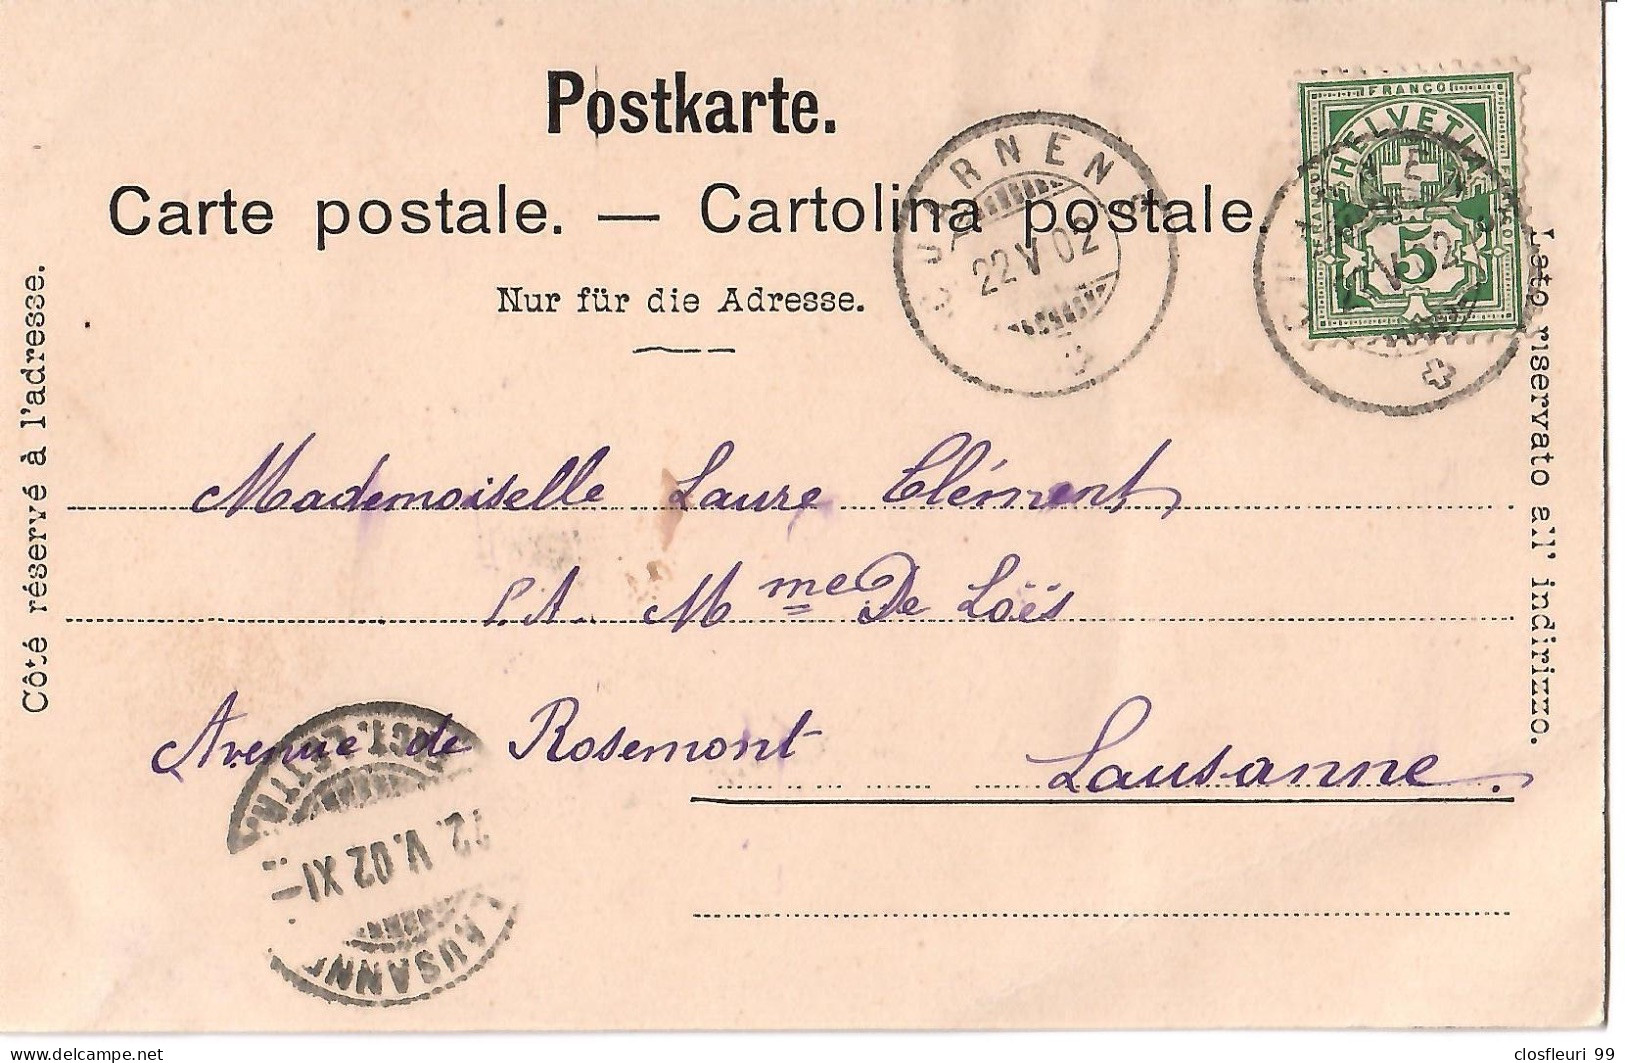 Postkarte.
Carte postale. — Cartolina postale.
Nur für die Adresse.
Côté réservé à l'adresse.
Lato riservato all' indirizzo.
FRANCO
HELVETIA
5
CUARNENS
22 V 02
Mademoiselle Laure Clément
Mme De Loës
Avenue de Rosemont Lausanne.
22. V. 02 XI
LAUSANNE
closfleuri 99